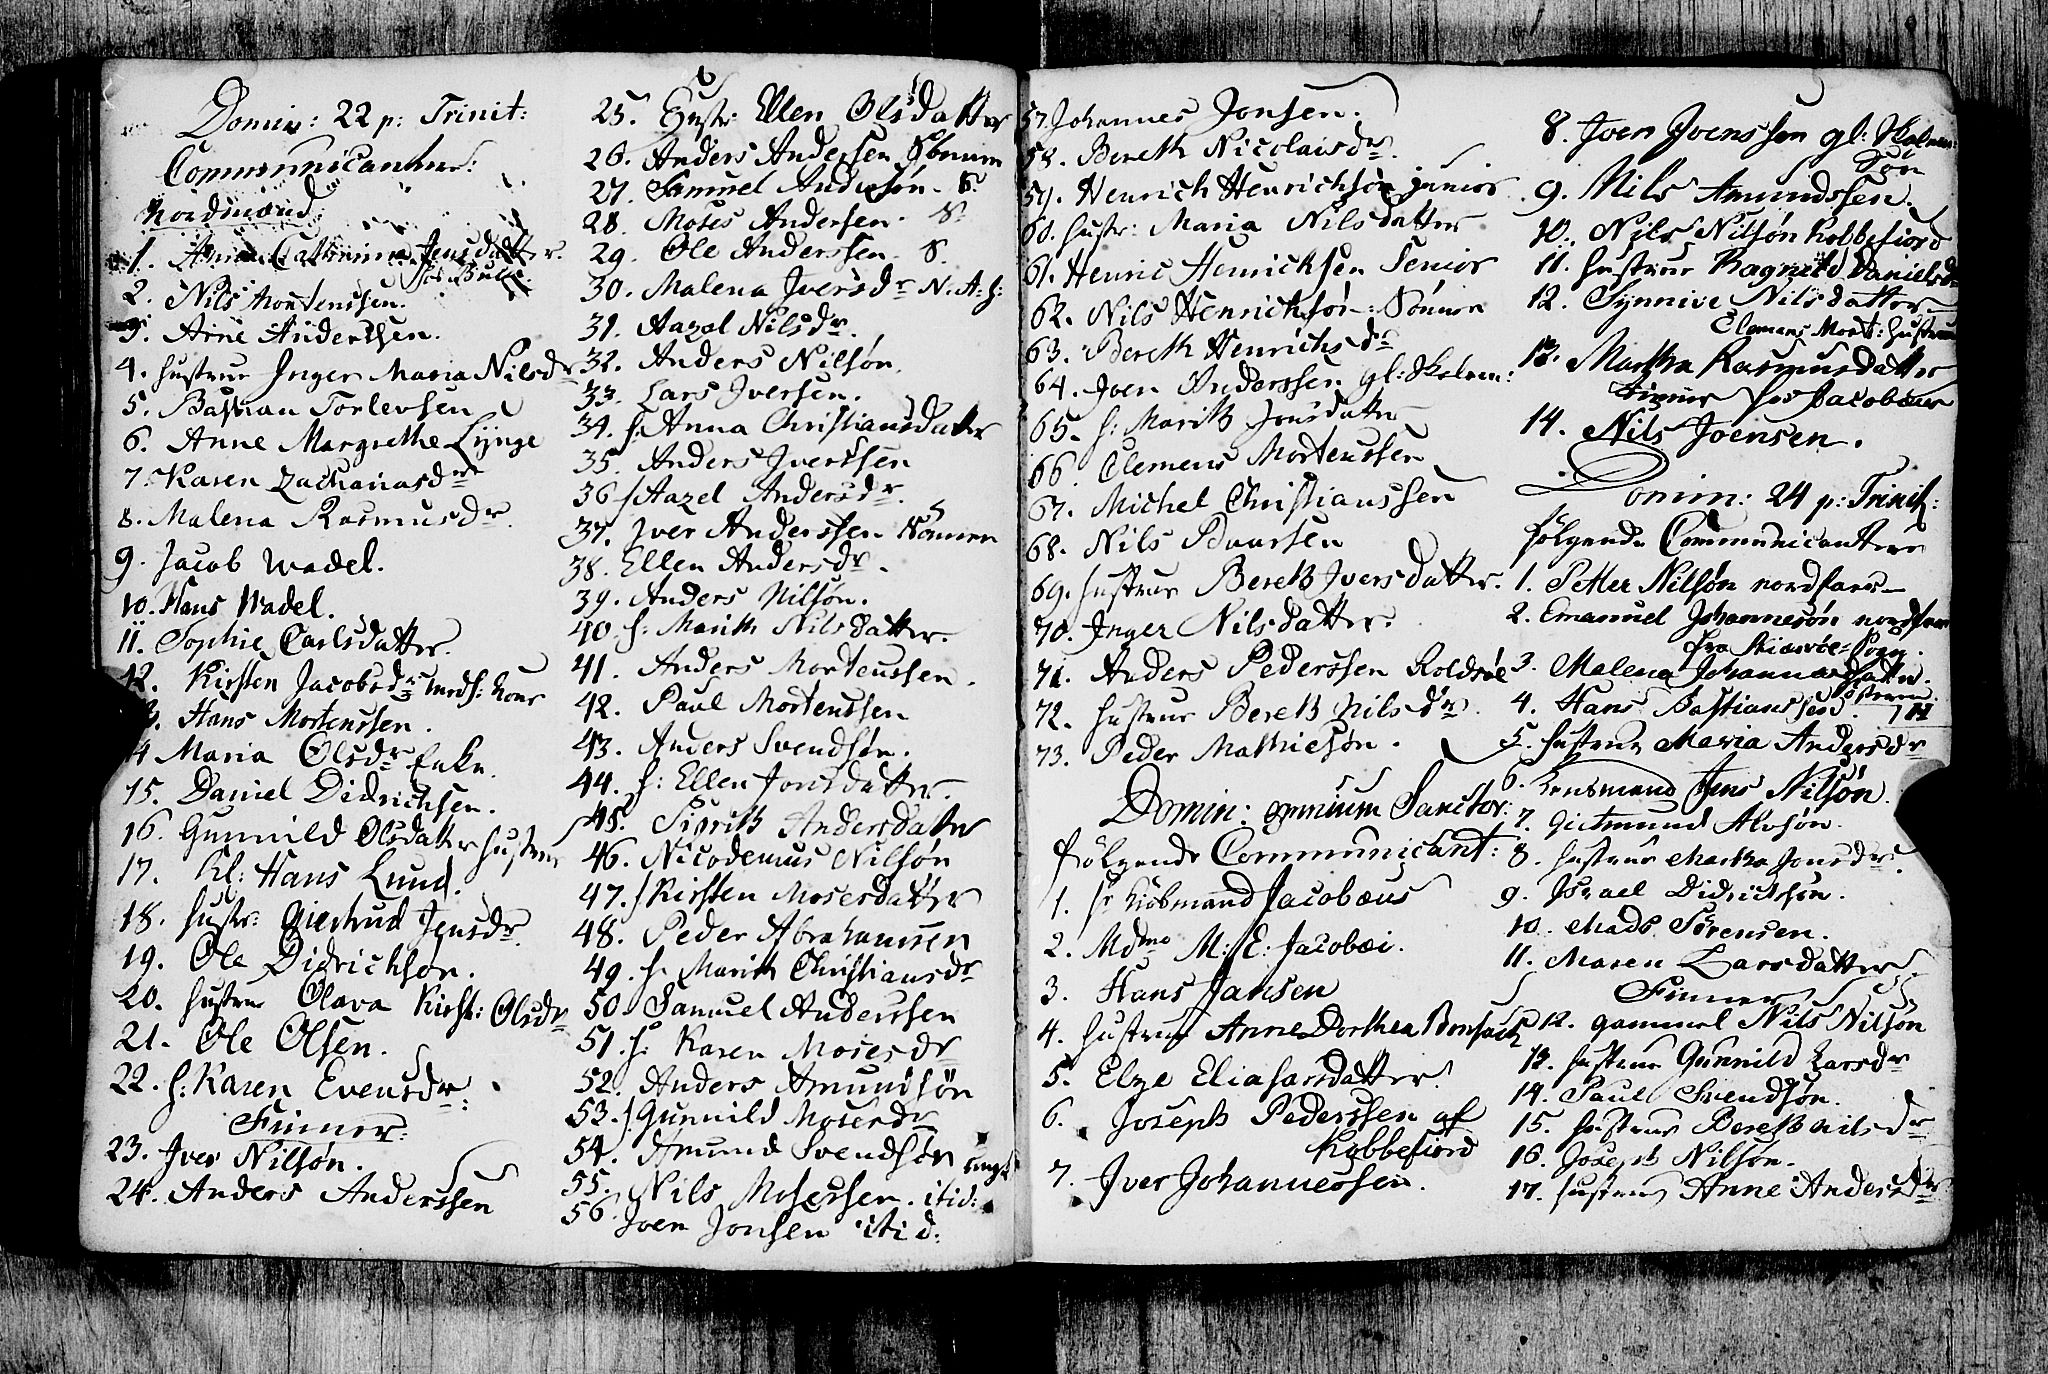 Domin: 22 p: Trinit:
Communicanter:
Nordmænd:
1. Anna Cathrina Jensdatter.
2. Nils Mortenssen.
3. Arne Anderssen.
4. hustrue Inger Maria Nilsdr
5. Bastian Torlevsen
6. Anne Margrethe Lynge
7. Karen Zachariasdr
8. Malena Rasmusdr.
9. Jacob Wadel.
10. Hans Wadel.
11. Sophie Carlsdatter.
12. Kirsten Jacobsdr Inds: Kone
13. Hans Mortenssen.
14 Maria Olsdr Enke.
15. Daniel Didrichsen.
16. Gunnild Olsdatter hustrue
17. Kl: Hans Lund.
18. hustr: Giertrud Jensdr.
19. Ole Didrichsøn.
20. hustrue Olava Kirst: Olsdr
21. Ole Olsen.
22. h: Karen Evensdr:
Finner:
23. Iver Nilsøn.
24. Anders Anderssen
25. Hustr: Ellen Olsdatter
26. Anders Andersen Sönnen
27. Samuel Andersøn. S.
28. Moses Andersen. S.
29. Ole Anderssen. S.
30. Malena Iversdr N. A: h:
31. Aazel Nilsdr.
32. Anders Nilsøn.
33. Lars Iversen.
34. h: Anna Christiansdatter
35. Anders Iverssen
36 h Aazel Andersdr.
37. Iver Anderssen Sönnen
38. Ellen Andersdr.
39. Anders Nilsøn.
40. h: Marith Nilsdatter.
41. Anders Mortenssen.
42. Paul Mortenssen
43. Anders Svendsøn.
44. h: Ellen Jonsdatter.
45. Sigrith Andersdatter
46. Nicodemus Nilsøn
47. h Kirsten Mosesdatter
48. Peder Abrahamsen
49. h. Marith Christiansdr
50. Samuel Anderssen
51. h: Karen Mosesdr
52. Anders Amundsøn
53. h Gunnild Mosesdr
54. Amund Svendsøn ungk:
55. Nils Mosessen. itid:
56. Joen Jonsen itid:
57. Johannes Jonsen.
58. Bereth Nicolaisdr.
59. Henrich Henrichsøn junior
60. hustr: Maria Nilsdatter
61. Henric Henricksen Senior
62. Nils Henrichsøn: Sönnen
63. Bereth Henrichsdr
64. Joen Anderssen gl: Skolem:
65. h: Marith Jonsdatter
66. Clemens Mortenssen
67. Michel Christianssen
68. Nils Baarsen
69. hustrue Bereth Iversdatter.
70. Inger Nilsdatter.
71. Anders Pederssen Roldsøe
72. hustrue Bereth Nilsdr.
73. Peder Mathiesøn.
Domin: omnium Sanctor:
følgende Communicant:
1. hr Kiöbmand Jacobæus
2. Mdme M: E: Jacobæi.
3. Hans Jansen
4. hustrue Anne Dorthea Bonsach
5. Elze Eliasarsdatter.
6. Joseph Pederssen af
Kobbefiord
7. Iver Johannessen.
8. Joen Joenssen gl: Skolem:
Søn
9. Nils Amundssen.
10. Nils Nilsøn Kobbefiord
11. hustrue Ragnild Danielsdr
12. Synnive Nilsdatter
Clemens Mort: hustrue
13. Martha Rasmusdatter
tiener hos Jacobæus
14. Nils Joensen.
Domin: 24 p: Trinit:
følgende Communicantere
1. Petter Nilsøn nordfarer
2. Emanuel Johannesøn nordfar
fra Skiervøe Sogn.
3. Malena Johannesdatter.
4. Hans Bastianssen.
5. hustrue Maria Andersdr
6. Lensmand Jens Nilsøn.
7. Gietmund Alvsøn.
8. hustrue Martha Jonsdr.
9. Israel Didricksøn.
10. Mads Sörensen.
11. Maren Larsdatter
Finner
12. gammel Nils Nilsøn
13. hustrue Gunnild Larsdr
14. Paul Svendsøn.
15. hustrue Bereth Nilsdr
16. Joseph Nilsøn.
17. hustrue Anne Andersdr